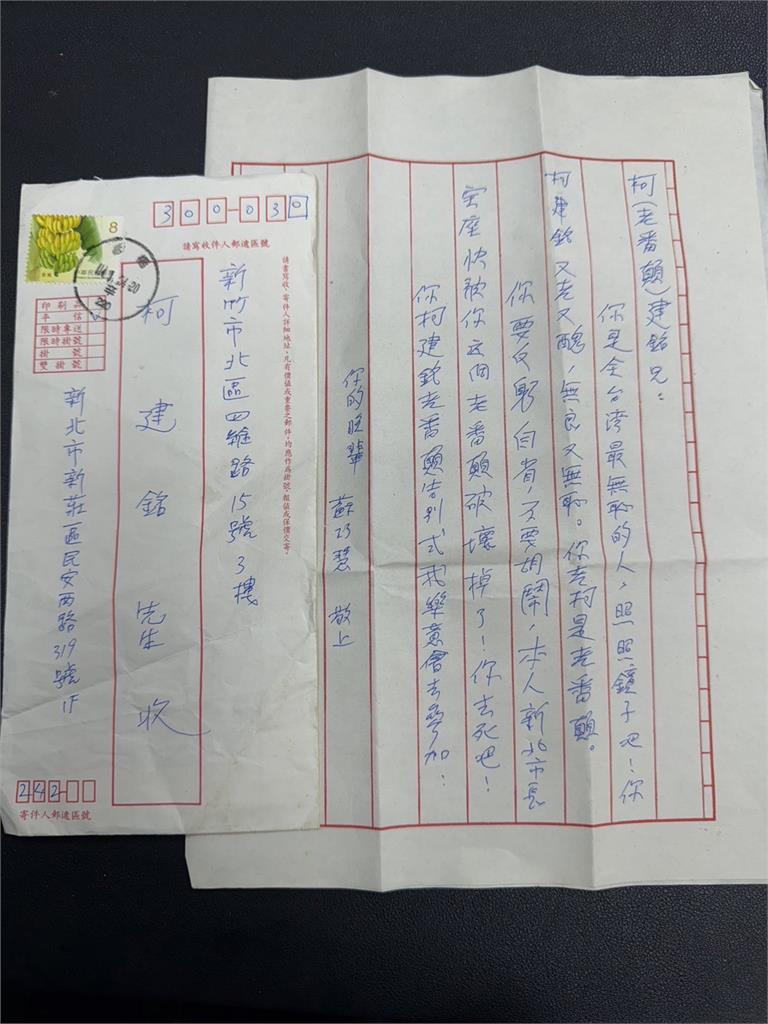 柯(老番顛)建銘兄：
你是全台灣最無恥的人，照照鏡子吧！你
柯建銘又老又醜，無良又無恥。你老柯是老番顛。
你要反躬自省，不要胡鬧，本人新北市長
宝座快被你這個老番顛破壞掉了！你去死吧！
你柯建銘老番顛告別式我樂意會去參加！
你的晚輩 蘇巧慧 敬上
300-030
請寫收件人郵遞區號
請書寫收、寄件人詳細地址，凡有價值或重要之郵件，均應作為掛號、報值或保價交寄。
新竹市北區四維路15號3樓
柯建銘 先生 收
8
印刷
平信
限時專送
限時掛號
掛號
雙掛號
新北市新莊區民安西路319號1F
242-
寄件人郵遞區號